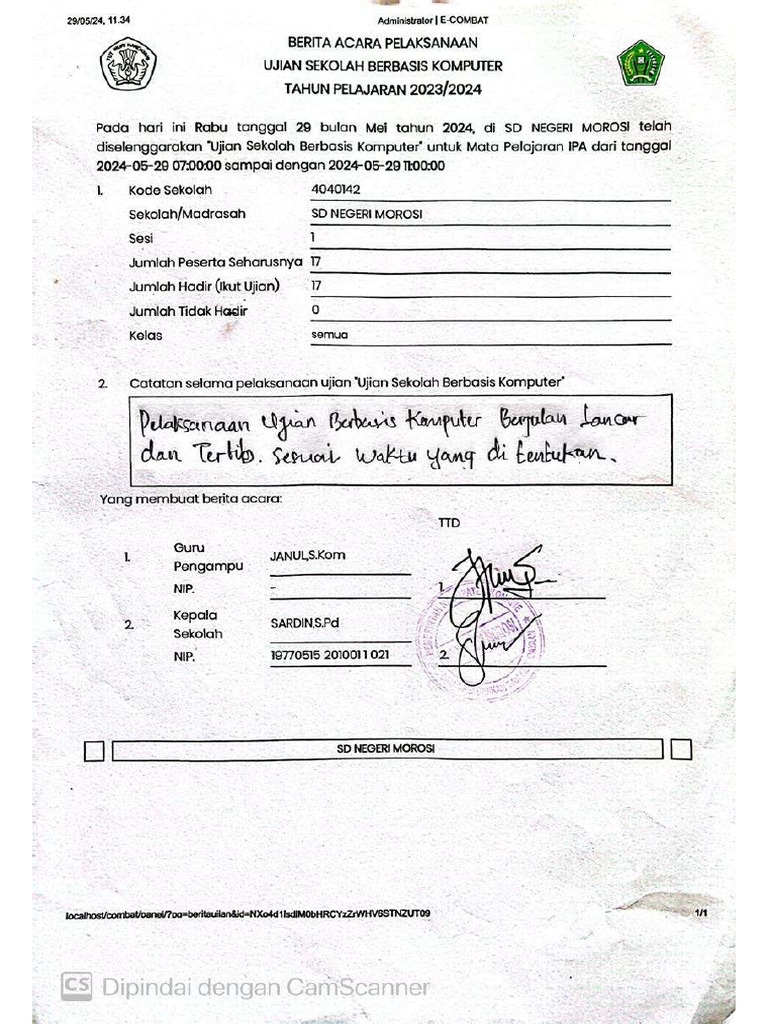 29/05/24, 11.34
Administrator | E-COMBAT
BERITA ACARA PELAKSANAAN
UJIAN SEKOLAH BERBASIS KOMPUTER
TAHUN PELAJARAN 2023/2024
Pada hari ini Rabu tanggal 29 bulan Mei tahun 2024, di SD NEGERI MOROSI telah
diselenggarakan "Ujian Sekolah Berbasis Komputer" untuk Mata Pelajaran IPA dari tanggal
2024-05-29 07:00:00 sampai dengan 2024-05-29 11:00:00
1. Kode Sekolah 4040142
Sekolah/Madrasah SD NEGERI MOROSI
Sesi 1
Jumlah Peserta Seharusnya 17
Jumlah Hadir (Ikut Ujian) 17
Jumlah Tidak Hadir 0
Kelas semua
2. Catatan selama pelaksanaan ujian "Ujian Sekolah Berbasis Komputer"
Pelaksanaan Ujian Berbasis Komputer Berjalan Lancar
dan Tertib. Sesuai Waktu yang di tentukan.
Yang membuat berita acara:
TTD
1. Guru Pengampu JANUL,S.Kom
NIP. - 1.
2. Kepala Sekolah SARDIN,S.Pd
NIP. 19770515 201001 1 021 2.
SD NEGERI MOROSI
1/1
CS Dipindai dengan CamScanner